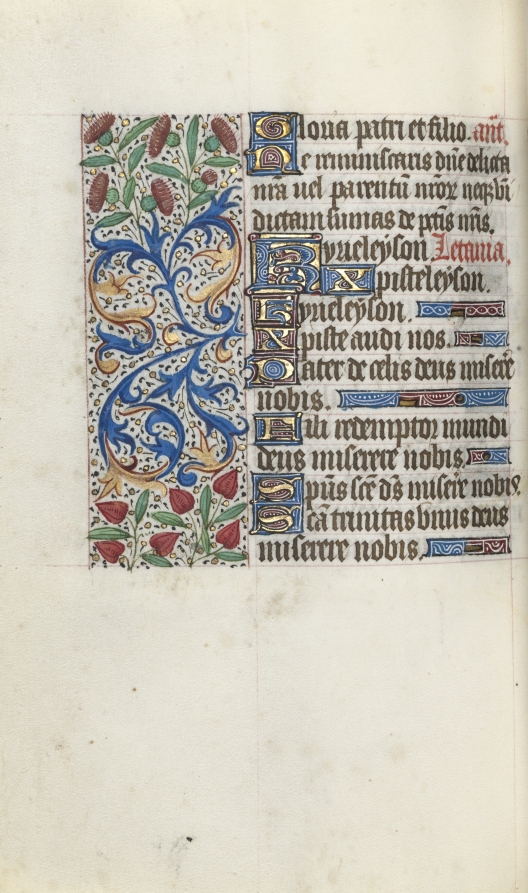 Gloria patri et filio. ant.
Ne reminiscaris dn̄e delicta
nr̄a uel parentū nr̄oꝝ neqꝫ vi
dictam sumas de pctīs nr̄is.
Kyrieleyson Letania.
xp̄isteleyson.
Kyrieleyson.
Xp̄iste audi nos.
Pater de celis deus miserē
nobis.
Fili redemptor mundi
deus miserere nobis.
Spūs scē ds̄ miserē nobis.
Scā trinitas vnus deus
miserere nobis.